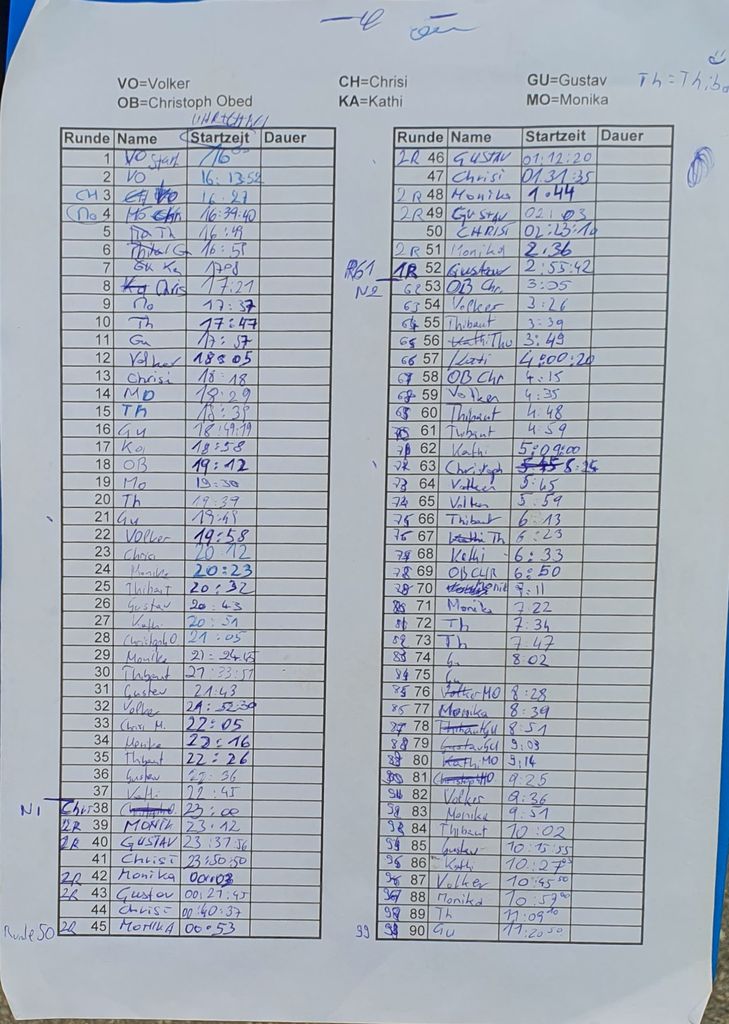 VO=Volker CH=Chrisi GU=Gustav Th=Thibo
OB=Christoph Obed KA=Kathi MO=Monika
Runde Name Startzeit Dauer
1 VO Start 16
2 VO 16:13:52
CH 3 16:27
Mo 4 16:39:40
5 Th 16:49
6 16:59
7 Ka
8 Chris 17:21
9 Mo 17:37
10 Th 17:47
11 Gu 17:57
12 Volker 18:05
13 Chrisi 18:18
14 MO 18:29
15 Th 18:39
16 Gu 18:49:19
17 Ka 18:58
18 OB 19:12
19 Mo 19:30
20 Th 19:39
21 Gu 19:49
22 Volker 19:58
23 Chrisi 20 12
24 Monika 20:23
25 Thibaut 20:32
26 Gustav 20:43
27 Kathi 20:51
28 Christoph O 21:05
29 Monika 21:24:45
30 Thibaut 21:33:51
31 Gustav 21:43
32 Volker 21:52:30
33 Chrisi M. 22:05
34 Monika 22:16
35 Thibaut 22:26
36 Gustav 22:36
37 Kathi 22:45
N1 Chr 38 23:00
2R 39 MONIK 23:12
2R 40 GUSTAV 23:37:56
41 Chrisi 23:50:50
2R 42 Monika 00:03
2R 43 Gustav 00:21:45
44 Chrisi 00:40:37
Runde 50 2R 45 MONIKA 00:53
Runde Name Startzeit Dauer
2R 46 GUSTAV 01:12:20
47 Chrisi 01:31:35
2R 48 Monika 1:44
2R 49 Gustav 02:03
50 CHRISI 02:23:10
2R 51 Monika 2:36
R61 1R 52 Gustav 2:55:42
N2 62 53 OB Chr. 3:05
63 54 Volker 3:26
64 55 Thibaut 3:39
65 56 Kathi 3:49
66 57 Kati 4:00:20
67 58 OB Chr 4:15
68 59 Volker 4:35
69 60 Thibaut 4:48
61 Thibaut 4:59
62 Kathi 5:09:00
63 Christoph 5:45
73 64 Volker 5:45
74 65 Volker 5:59
75 66 Thibaut 6:13
67 Kathi Th 6:23
68 Kathi 6:33
69 OB CHR 6:50
70 7:11
71 Monika 7:22
81 72 Th 7:34
82 73 Th 7:47
83 74 Gu 8:02
84 75 Gu
85 76 Volker MO 8:28
85 77 Monika 8:39
87 78 Thibaut Gu 8:51
88 79 Gustav GU 9:03
80 Kathi MO 9:14
81 Christoph MO 9:25
82 Volker 9:36
83 Monika 9:51
84 Thibaut 10:02
85 Gustav 10:15:55
96 86 Kathi 10:27
87 Volker 10:45 50
88 Monika 10:57 00
89 Th 11:09
99 90 Gu 11:20 50